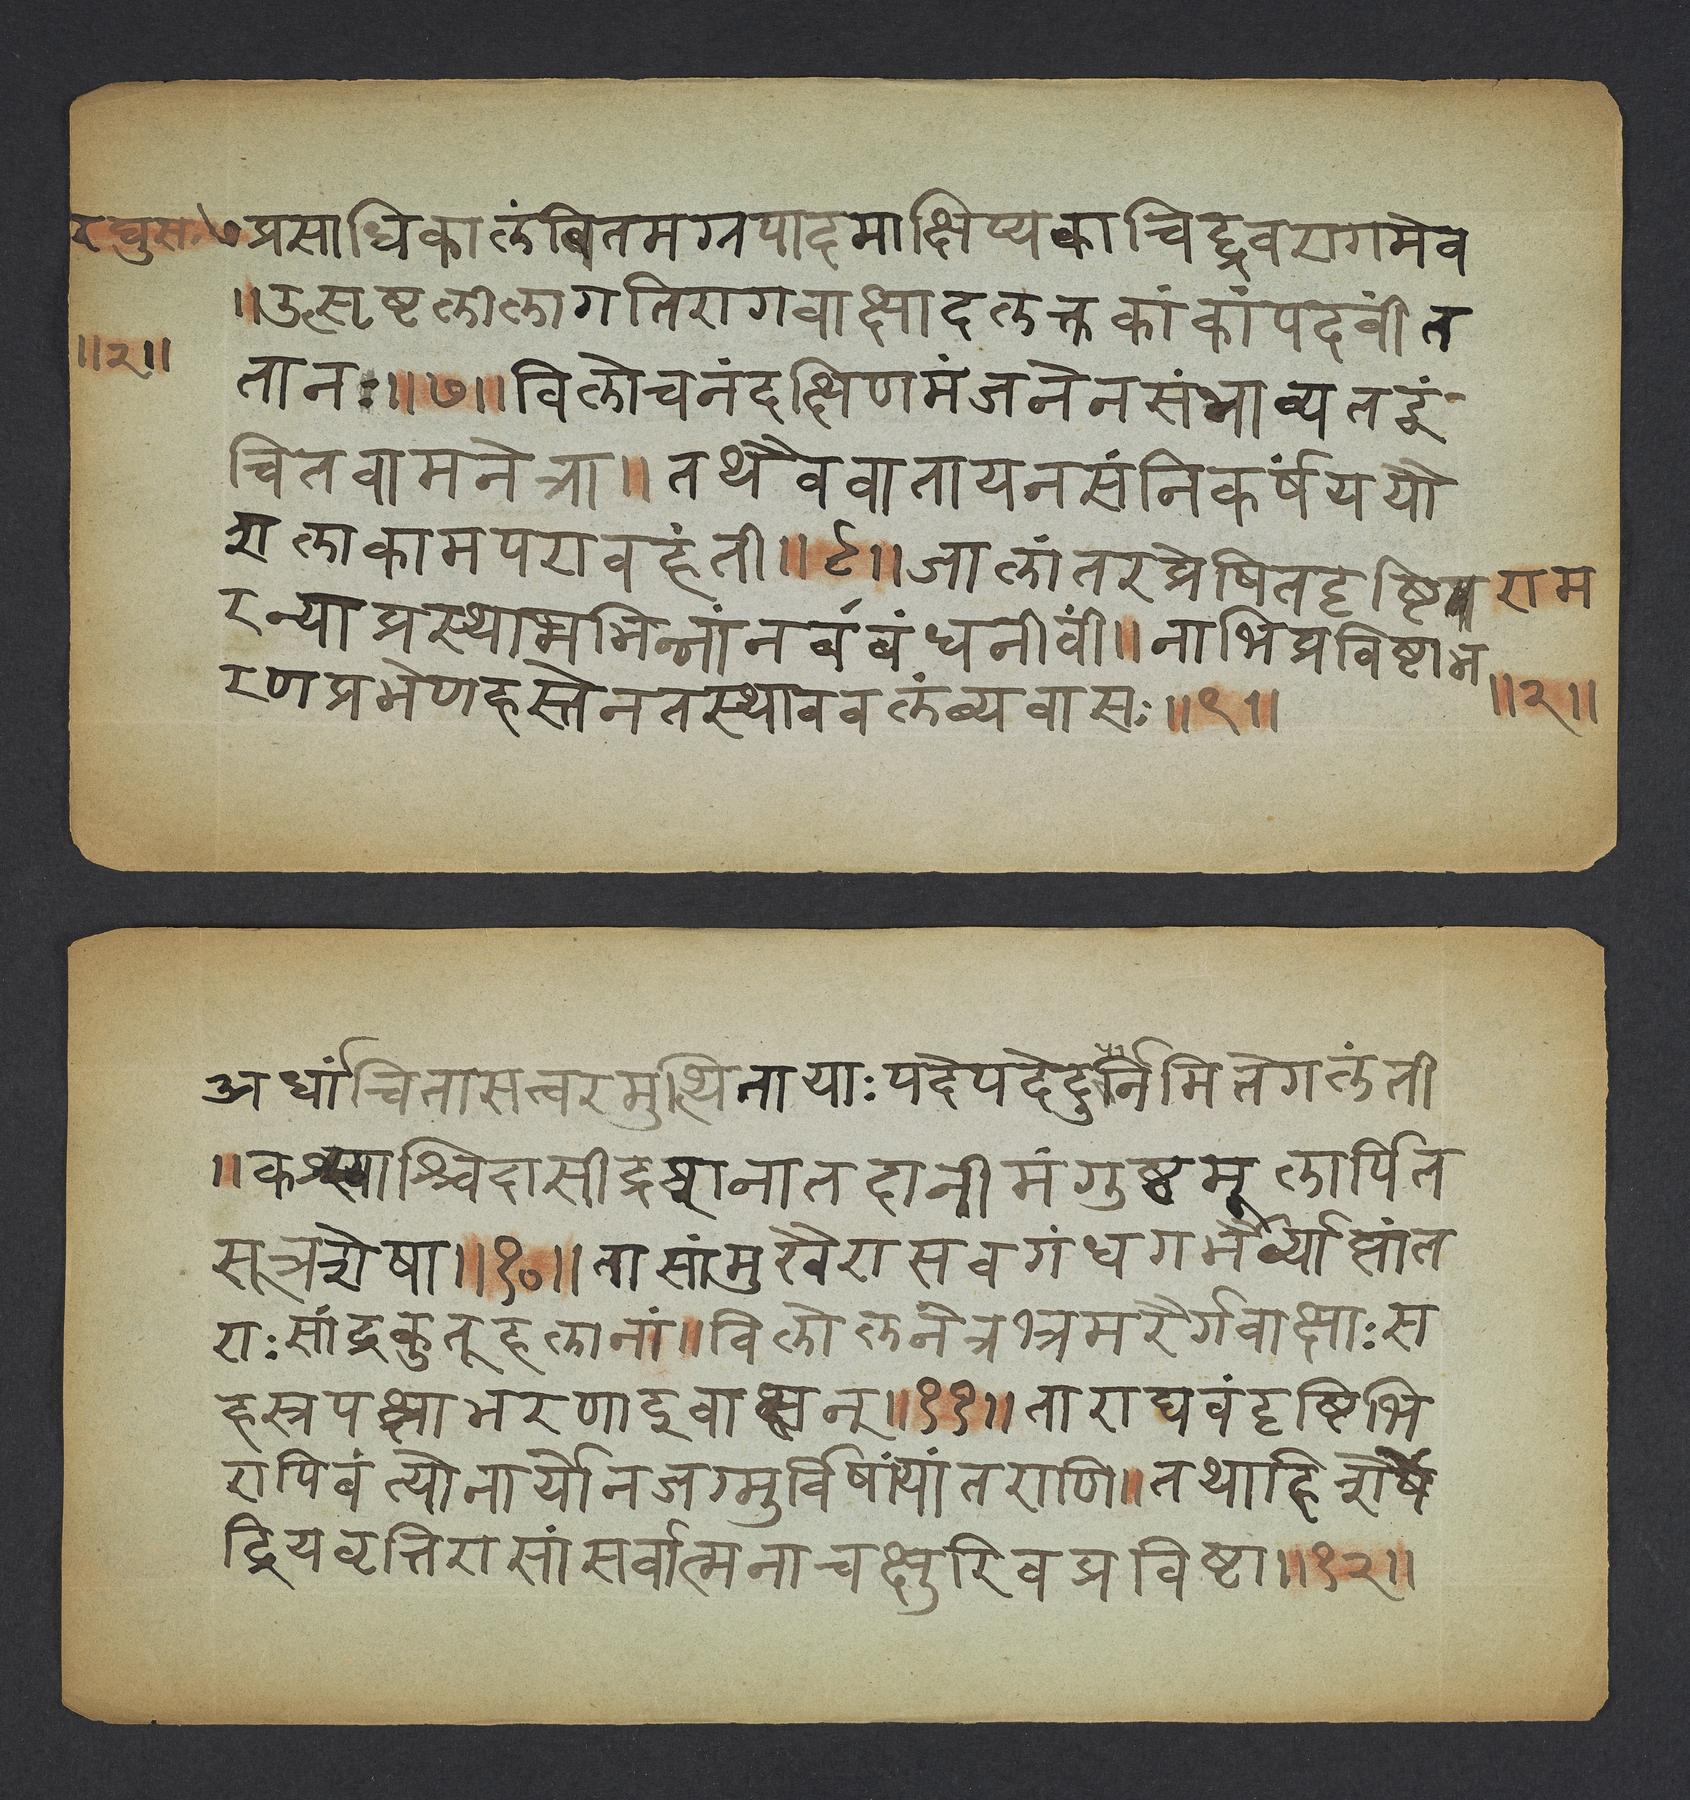 रघुस. ७ प्रसाधिकालंबितमग्रपादमाक्षिप्यकाचिद्द्रवरागमेव
॥उत्सृष्टलीलागतिरागवाक्षादलक्तकांकांपदवीं त
॥२॥
तानः॥७॥विलोचनंदक्षिणमंजनेनसंभाव्यतद्वं
चितवामनेत्रा॥तथैववातायनसंनिकर्षंययौ
शलाकामपरावहंती॥८॥जालांतरप्रेषितदृष्टि
राम
रन्याप्रस्थानभिन्नांनबबंधनीवीं॥नाभिप्रविष्टाभ
रणप्रभेणहस्तेनतस्थाववलंव्यवासः॥९॥
॥२॥
अर्धांचितासत्वरमुत्थितायाःपदेपदेदुर्निमितेगलंती
॥कस्याश्चिदासीद्रशनातदानीमंगुष्ठमूलार्पित
सूत्रशेषा॥१०॥तासांमुखैरासवगंधगर्भैर्व्याप्तांत
राःसांद्रकुतूहलानां॥विलोलनेत्रभ्रमरैर्गवाक्षाःस
हस्रपत्राभरणाइवासन्॥११॥ताराघवंदृष्टिभि
रापिबंत्योनार्योनजग्मुर्विषयांतराणि॥तथाहिशेषें
द्रियवृत्तिरासांसर्वात्मनाचक्षुरिवप्रविष्टा॥१२॥